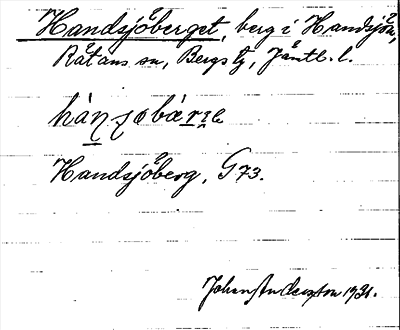 Handsjöberget, berg i Handsjön,
Rätans sn, Bergs tg, Jämtl. l.
Handsjöberg, G 73.
Johan Anderson 1931.